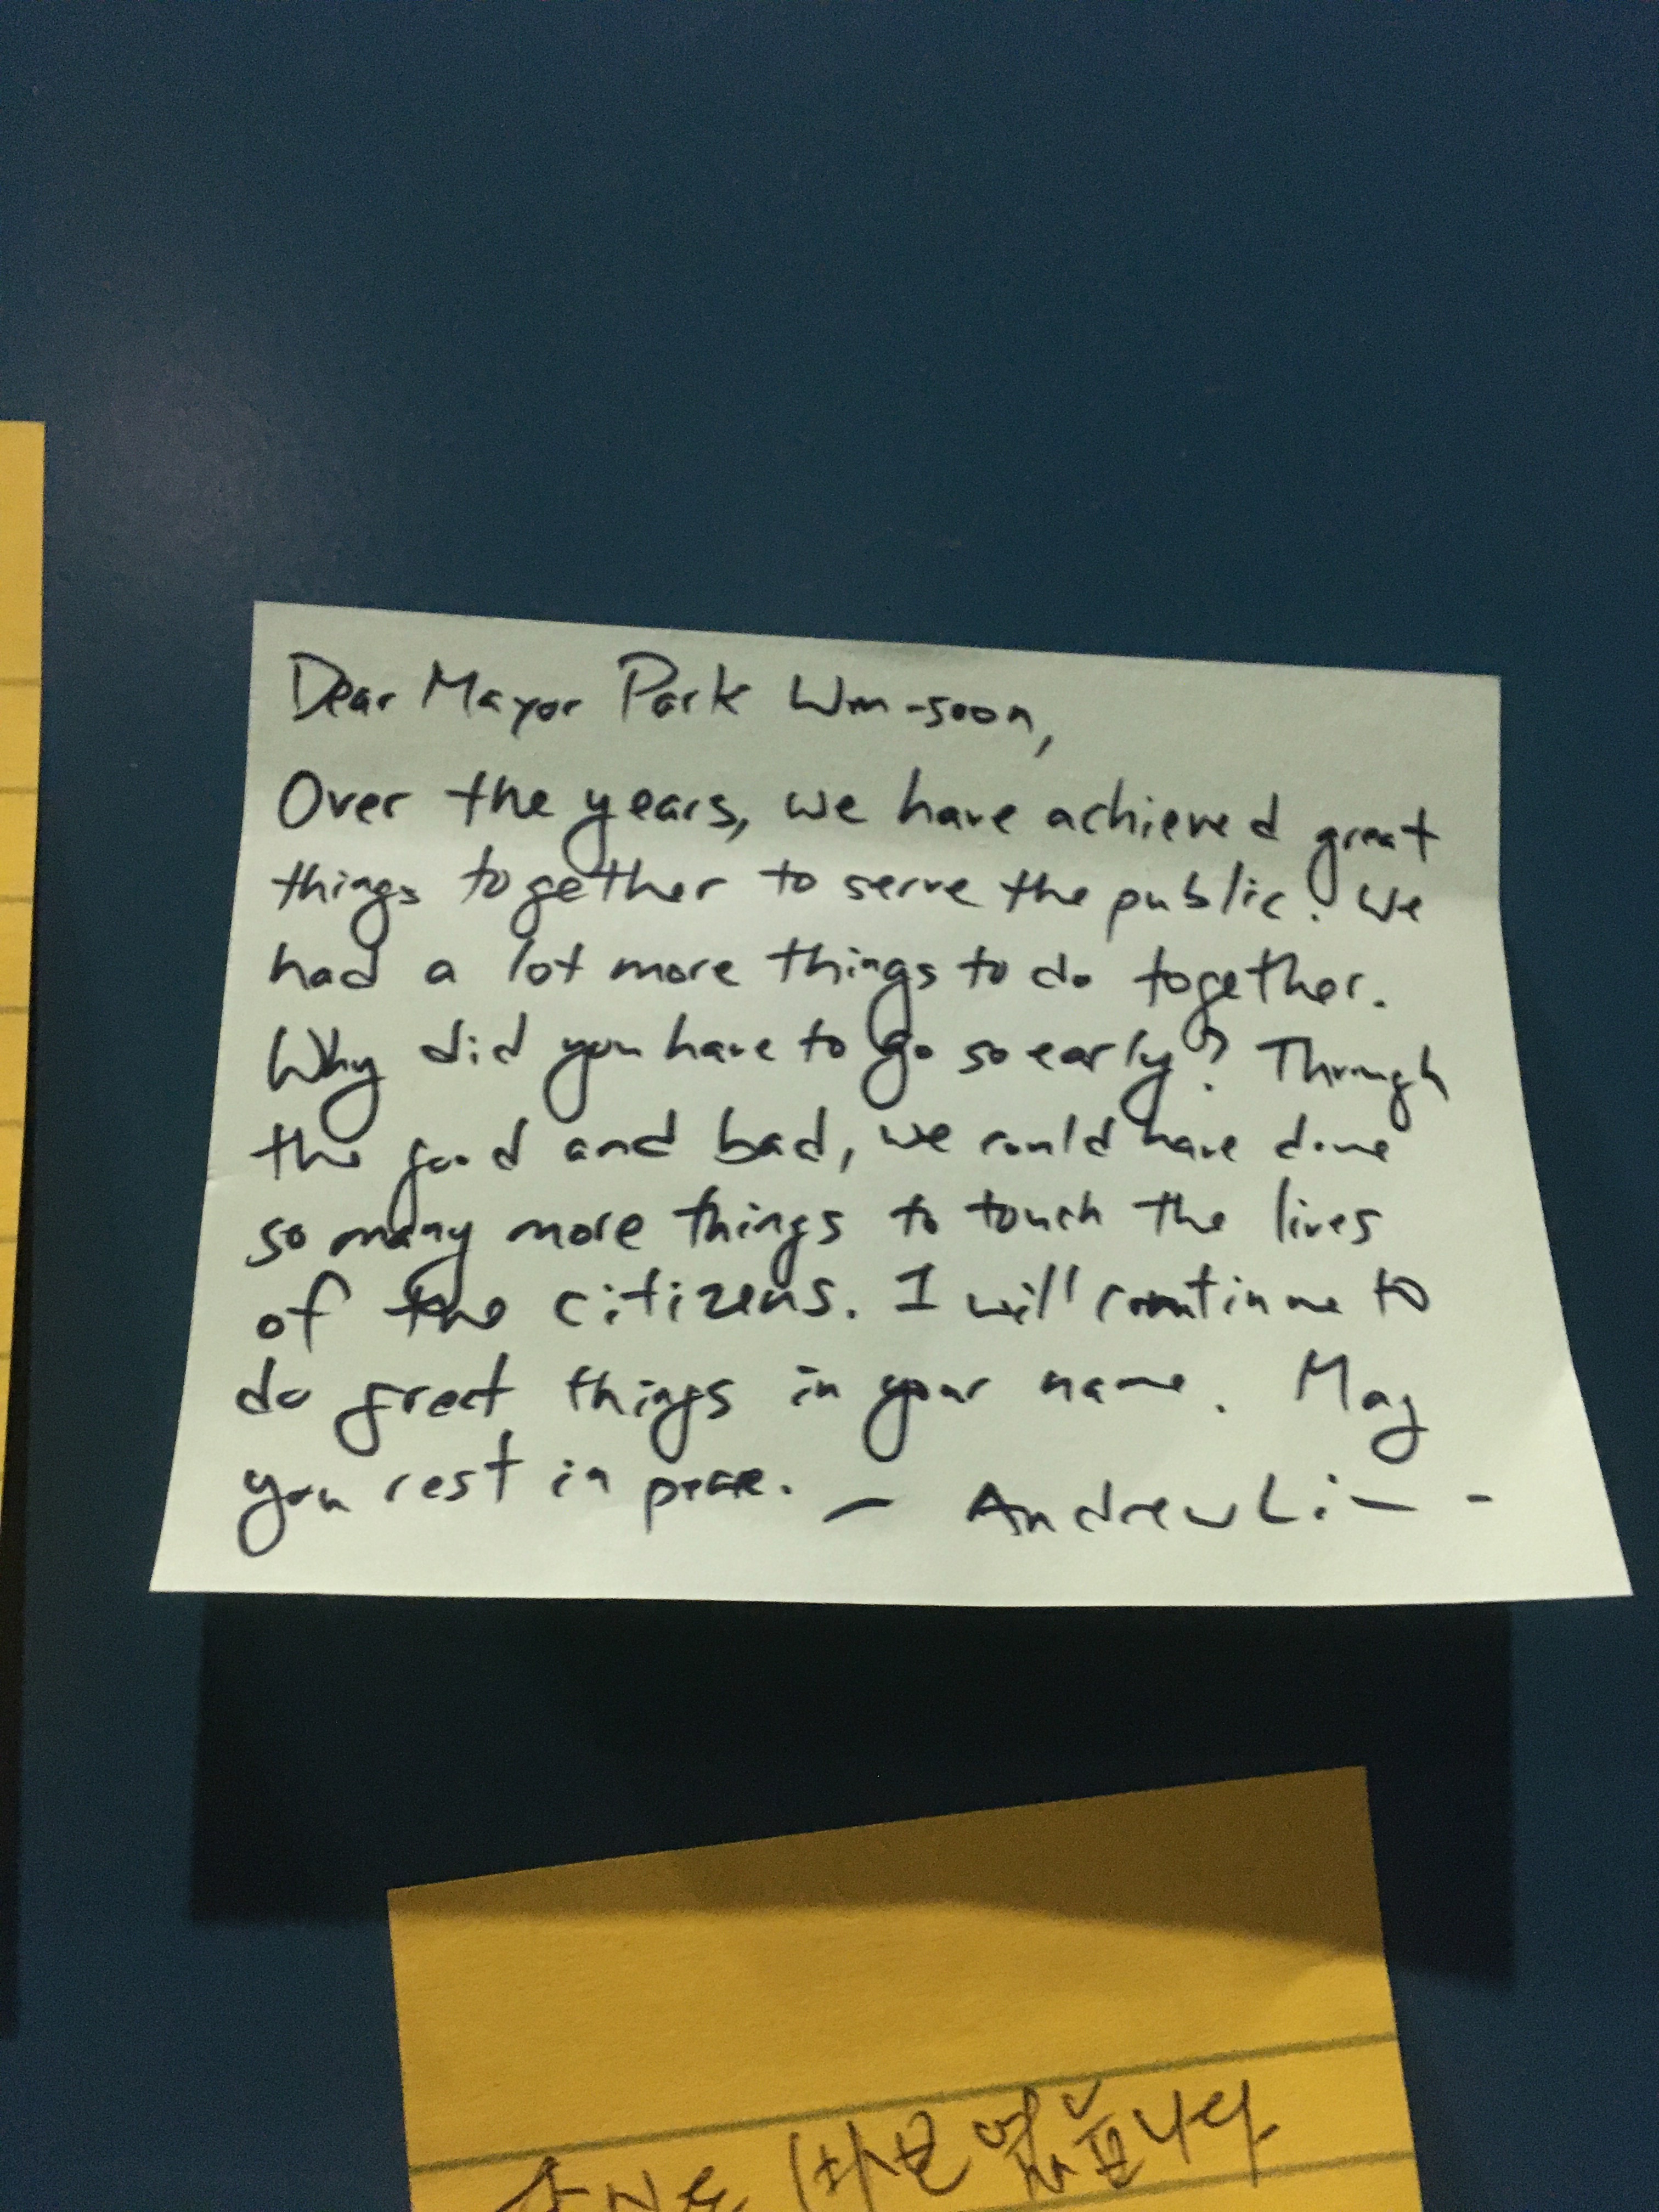 Dear Mayor Park Won-soon,
Over the years, we have achieved great
things together to serve the public. We
had a lot more things to do together.
Why did you have to go so early? Through
the good and bad, we could have done
so many more things to touch the lives
of the citizens. I will continue to
do great things in your name. May
you rest in peace. — Andrew